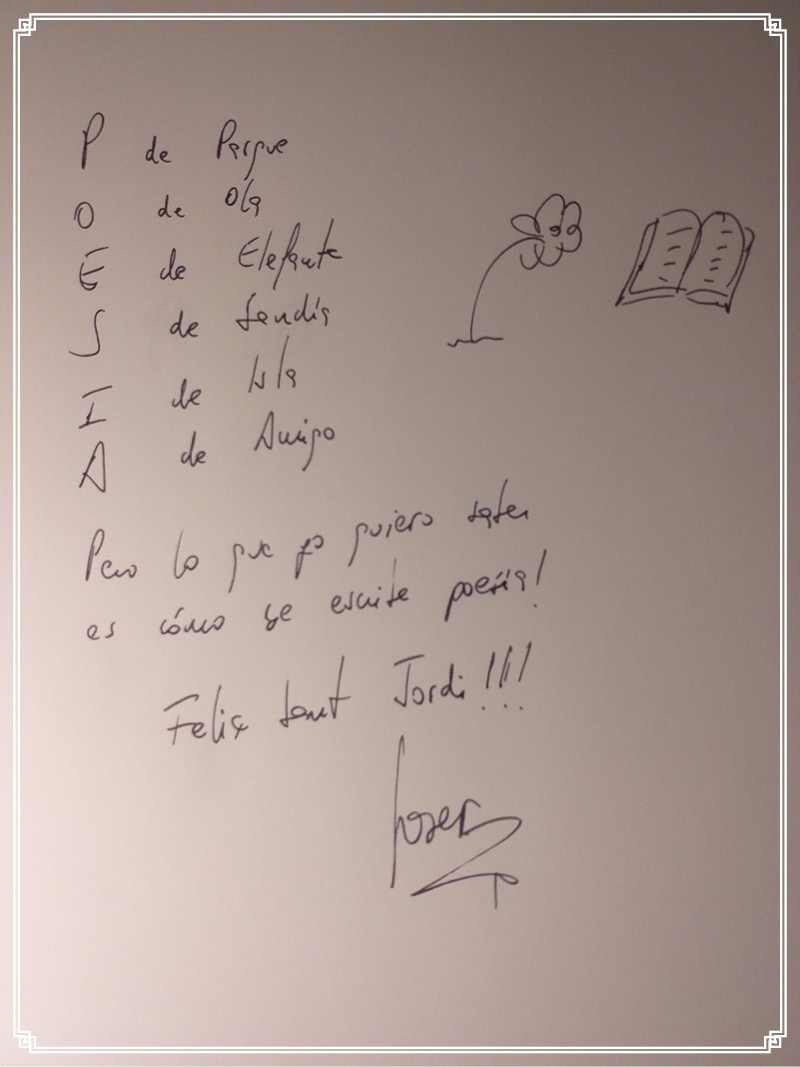 P de Parque
O de Ola
E de Elefante
S de Sandía
I de Isla
A de Amigo
Pero lo que yo quiero saber
es cómo se escribe poesía!
Felix Sant Jordi!!!